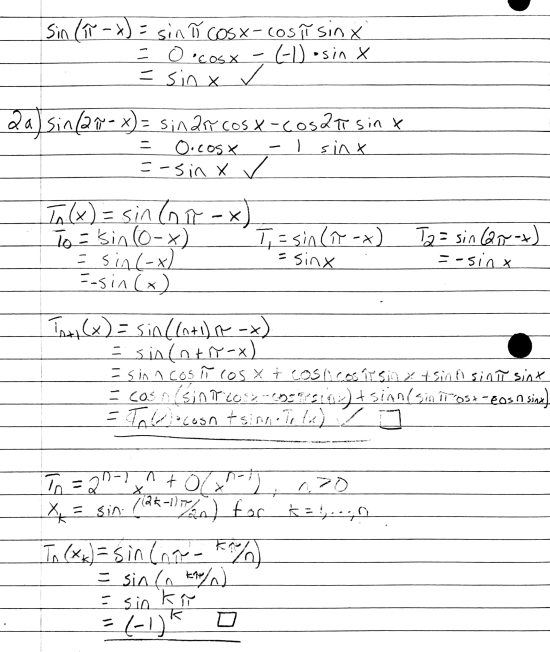 sin(π-x) = sinπ cosx - cosπ sinx
= 0·cosx - (-1)·sin x
= sin x ✓
2a) sin(2π-x) = sin2π cosx - cos2π sin x
= 0·cosx - 1 sin x
= -sin x ✓
Tn(x) = sin(nπ - x)
T0 = sin(0-x) T1 = sin(π-x) T2 = sin(2π-x)
= sin(-x) = sinx = -sin x
= -sin(x)
Tn+1(x) = sin((n+1)π - x)
= sin(n+π-x)
= sin n cosπ cos x + cosn cosπ sin x + sin n sinπ sinx
= cosn (sinπ cosx - cosπ sinx) + sinn (sinπ cosx - cosn sinx)
= Tn(x)·cosn + sinn·Tn(x) ✓ □
Tn = 2^(n-1) x^n + O(x^(n-1)), n>0
xk = sin((2k-1)π/2n) for k=1,...,n
Tn(xk) = sin(nπ - kπ/n)
= sin(n kπ/n)
= sin kπ
= (-1)^k □